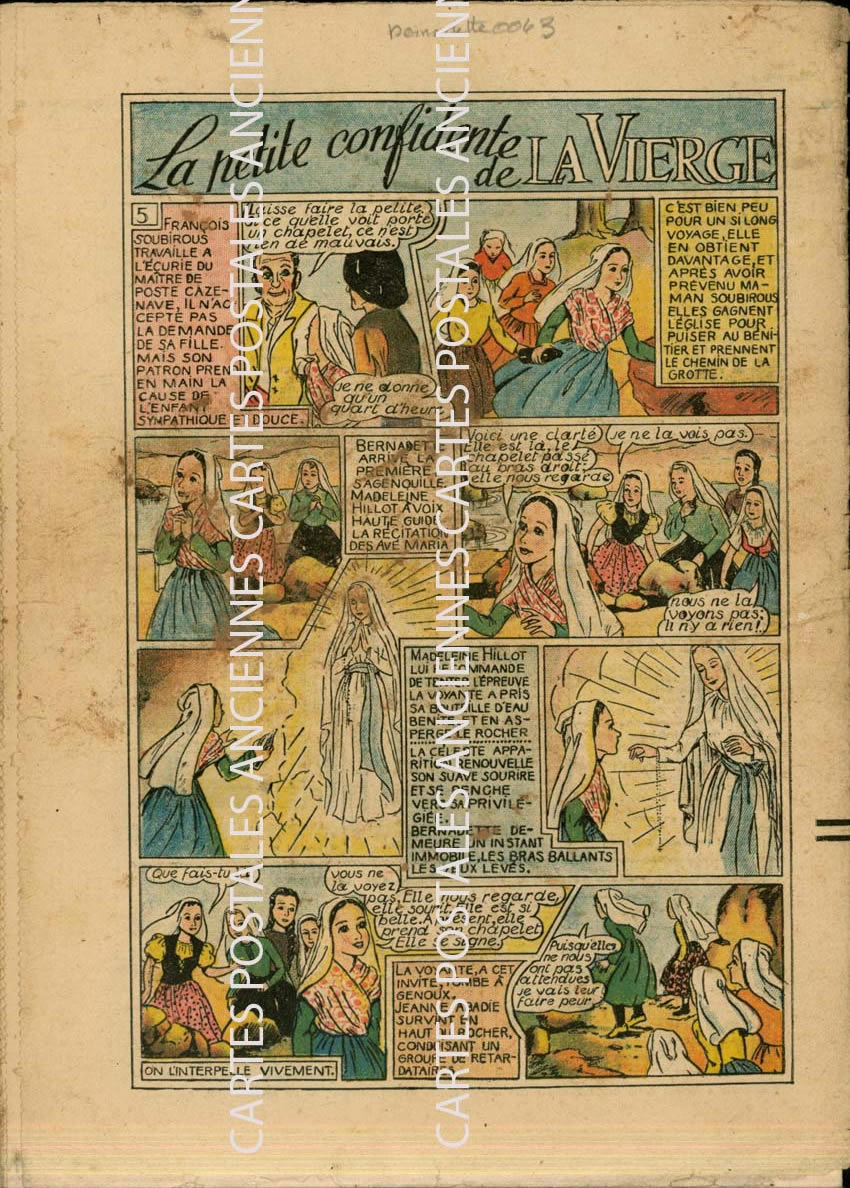 0063
La petite confidente
de LA VIERGE
5
FRANÇOIS
SOUBIROUS
TRAVAILLE A
L'ÉCURIE DU
MAÎTRE DE
POSTE CAZE-
NAVE, IL N'AC
CEPTE PAS
LA DEMANDE
DE SA FILLE.
MAIS SON
PATRON PREND
EN MAIN LA
CAUSE DE
L'ENFANT
SYMPATHIQUE ET DOUCE.
Laisse faire la petite,
si ce qu'elle voit porte
un chapelet, ce n'est
rien de mauvais.
Je ne donne
qu'un
quart d'heure
C'EST BIEN PEU
POUR UN SI LONG
VOYAGE, ELLE
EN OBTIENT
DAVANTAGE, ET
APRÈS AVOIR
PRÉVENU MA-
MAN SOUBIROUS
ELLES GAGNENT
L'ÉGLISE POUR
PUISER AU BÉNI-
TIER ET PRENNENT
LE CHEMIN DE LA
GROTTE.
BERNADETTE
ARRIVE LA
PREMIÈRE
S'AGENOUILLE
MADELEINE
HILLOT A VOIX
HAUTE GUIDE
LA RÉCITATION
DES AVÉ MARIA
Voici une clarté
Elle est là, le
chapelet passé
au bras droit;
elle nous regarde
Je ne la vois pas.
nous ne la
voyons pas;
Il n'y a rien!
MADELEINE HILLOT
LUI RECOMMANDE
DE TENTER L'ÉPREUVE
LA VOYANTE A PRIS
SA BOUTEILLE D'EAU
BENITE ET EN AS-
PERGE LE ROCHER
LA CÉLESTE APPA-
RITION RENOUVELLE
SON SUAVE SOURIRE
ET SE PENCHE
VERS SA PRIVILÉ-
GIÉE.
BERNADETTE DE-
MEURE UN INSTANT
IMMOBILE, LES BRAS BALLANTS
LES YEUX LEVÉS.
Que fais-tu là
ON L'INTERPELLE VIVEMENT.
vous ne
la voyez
pas, Elle nous regarde,
elle sourit. Elle est si
belle. A présent, elle
prend son chapelet
Elle se signe,
LA VOYANTE, A CET
INVITE, TOMBE À
GENOUX.
JEANNE ABADIE
SURVINT EN
HAUT DU ROCHER,
CONDUISANT UN
GROUPE DE RETAR-
DATAIRES
Puisqu'elles
ne nous
ont pas
attendues
je vais leur
faire peur
CARTES POSTALES ANCIENNES CARTES POSTALES ANCIENNES
CARTES POSTALES ANCIENNES CARTES POSTALES ANCIENNES